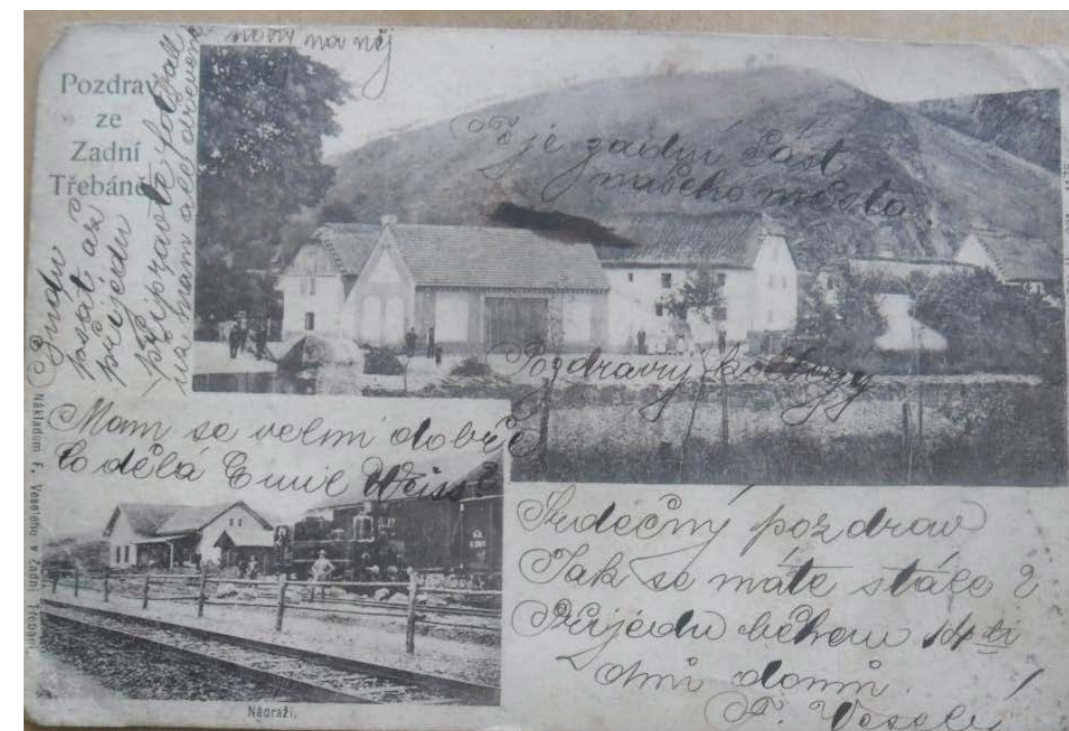 Pozdrav
ze
Zadní
Třebáně
na něj
psát až
přijedu
připravte
na hraní ale
T je zadní část
našeho města.
Pozdravy kollegy
Mam se velmi dobře
Co dělá Emil Weiss
Nákladem F. Veselého v Zadní Třebani
Nádraží.
Srdečný pozdrav
Jak se máte stále?
Přijedu během 14 ti
dnů domů.
F. Veselý